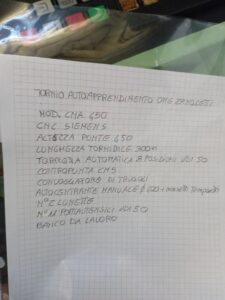 TORNIO AUTOAPPRENDIMENTO OMG ZANOLETTI
MOD. CNA 450
CNC SIEMENS
ALTEZZA PONTE 450
LUNGHEZZA TORNIBILE 3000
TORRETTA AUTOMATICA 8 POSIZIONI VDI 50
CONTROPUNTA CM5
CONVOGLIATORE DI TRUCIOLI
AUTOCENTRANTE MANUALE Ø + morsetti Temperati
N° 2 LUNETTE
N° 11 PORTAUTENSILI VDI 50
BANCO DA LAVORO